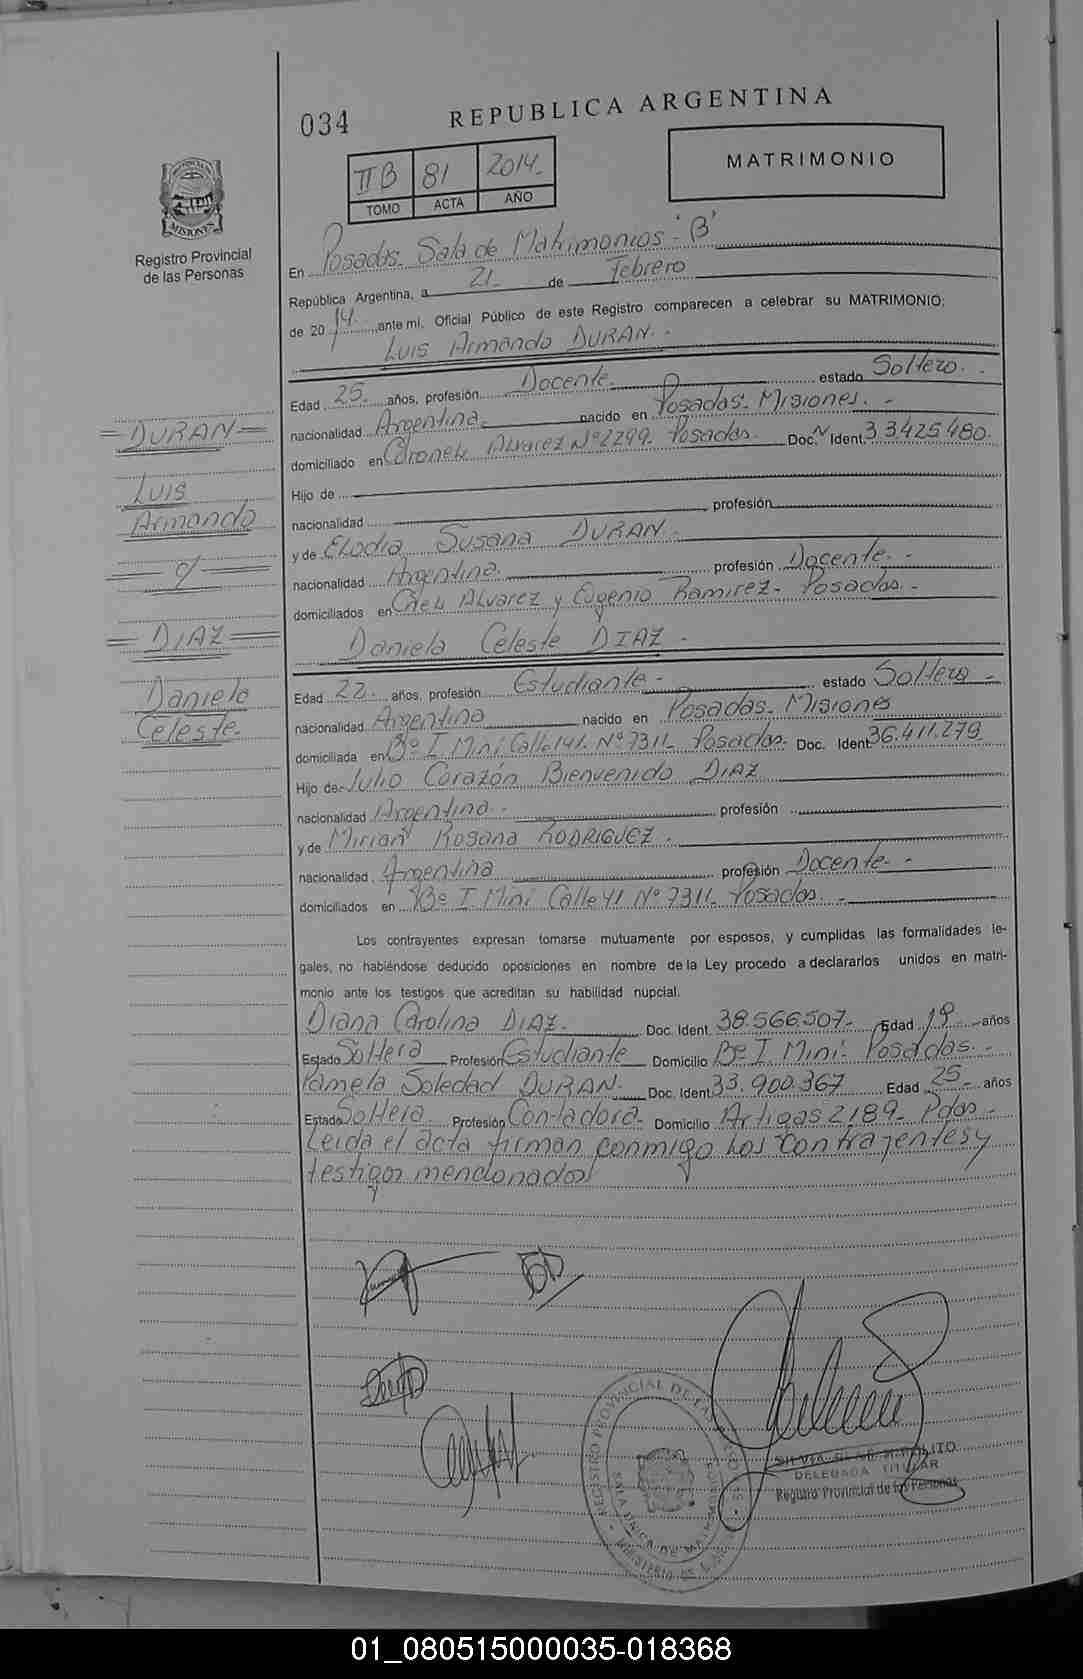 034
REPUBLICA ARGENTINA
II B 81 2014.-
TOMO ACTA AÑO
MATRIMONIO
PROVINCIA
MISIONES
Registro Provincial
de las Personas
En Posadas. Sala de Matrimonios - "B"
República Argentina, a 21.- de Febrero
de 2014. ante mí, Oficial Público de este Registro comparecen a celebrar su MATRIMONIO:
Luis Armando DURAN.-
Edad 25.- años, profesión Docente.- estado Soltero.-
nacionalidad Argentina.- nacido en Posadas. Misiones.-
domiciliado en Coronel Alvarez Nº 2299. Posadas. Doc. N Ident. 33.425.480.
Hijo de
nacionalidad profesión
y de Elodia Susana DURAN.
nacionalidad Argentina. profesión Docente.-
domiciliados en Cnel. Alvarez y Eugenio Ramirez.- Posadas.-
Daniela Celeste DIAZ.-
Edad 22.- años, profesión Estudiante.- estado Soltera.-
nacionalidad Argentina nacido en Posadas. Misiones
domiciliada en Bº I. Mini Calle 141. Nº 7311.- Posadas. Doc. Ident. 36.411.279
Hijo de Julio Corazón Bienvenido DIAZ
nacionalidad Argentina.- profesión
y de Mirian Rosana RODRIGUEZ.-
nacionalidad Argentina profesión Docente.-
domiciliados en Bº I. Mini Calle 41 Nº 7311. Posadas.-
Los contrayentes expresan tomarse mutuamente por esposos, y cumplidas las formalidades le-
gales, no habiéndose deducido oposiciones en nombre de la Ley procedo a declararlos unidos en matri-
monio ante los testigos que acreditan su habilidad nupcial.
Diana Carolina DIAZ. Doc. Ident. 38.566.507.- Edad 19 años
Estado Soltera Profesión Estudiante Domicilio Bº I. Mini. Posadas.-
Pamela Soledad DURAN. Doc. Ident. 33.900.367 Edad 25.- años
Estado Soltera Profesión Contadora. Domicilio Artigas 2189.- Pdas.-
Leida el acta firman conmigo los contrayentes y
testigos mencionados
= DURAN =
Luis
Armando
= y =
= DIAZ =
Daniela
Celeste.
REGISTRO PROVINCIAL DE LAS PERSONAS
SALA UNICA DE MATRIMONIOS
DELEGADA TITULAR
Registro Provincial de las Personas
01_080515000035-018368